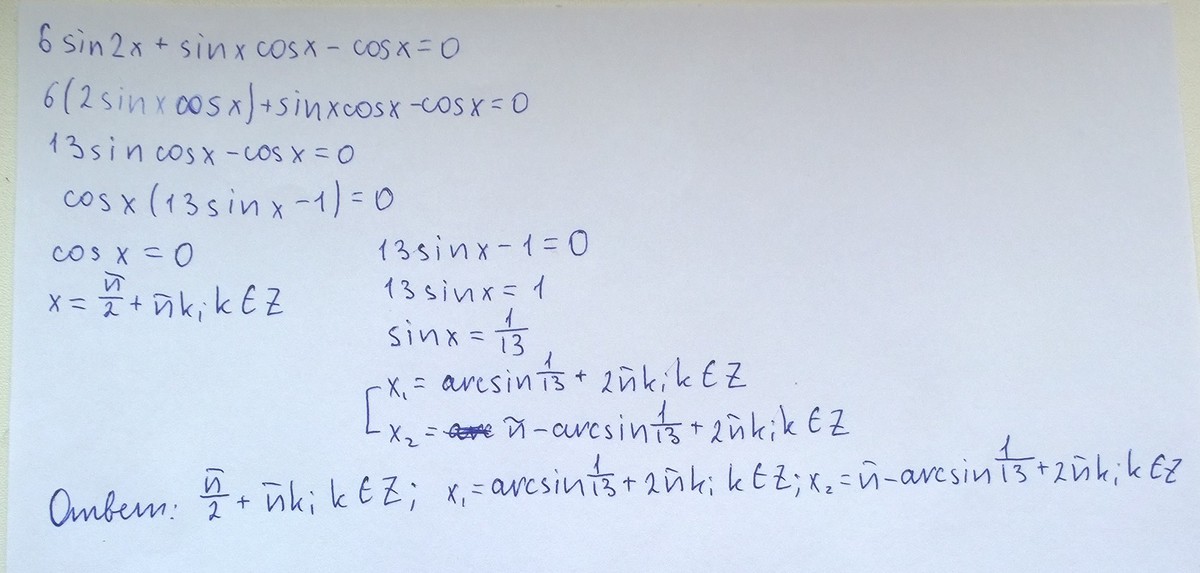 6 sin2x + sinx cosx - cosx = 0
6(2sinx cosx) + sinxcosx - cosx = 0
13sin cosx - cosx = 0
cosx(13sinx - 1) = 0
cosx = 0
x = π/2 + πk; k ∈ Z
13sinx - 1 = 0
13sinx = 1
sinx = 1/13
[x₁ = arcsin 1/13 + 2πk; k ∈ Z
x₂ = π - arcsin 1/13 + 2πk; k ∈ Z
Ответ: π/2 + πk; k ∈ Z; x₁ = arcsin 1/13 + 2πk; k ∈ Z; x₂ = π - arcsin 1/13 + 2πk; k ∈ Z